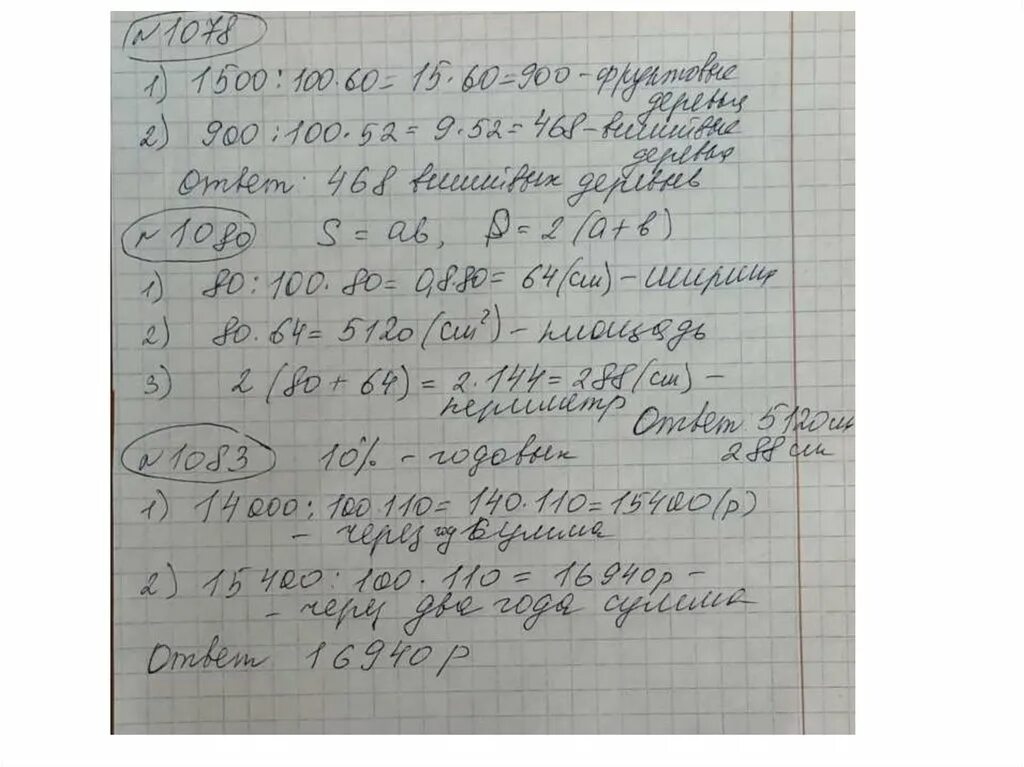 №1078
1) 1500 : 100 · 60 = 15 · 60 = 900 - фруктовые
деревья
2) 900 : 100 · 52 = 9 · 52 = 468 - вишнёвые
деревья
Ответ: 468 вишнёвых деревьев
№1080 S = ав, P = 2 (а + в)
1) 80 : 100 · 80 = 0,8 · 80 = 64 (см) - ширина
2) 80 · 64 = 5120 (см²) - площадь
3) 2 (80 + 64) = 2 · 144 = 288 (см) -
периметр Ответ 5120 см
288 см
№1083 10% - годовых
1) 14000 : 100 · 110 = 140 · 110 = 15400 (р)
- через год сумма
2) 15400 : 100 · 110 = 16940р -
- через два года сумма
Ответ 16940 р